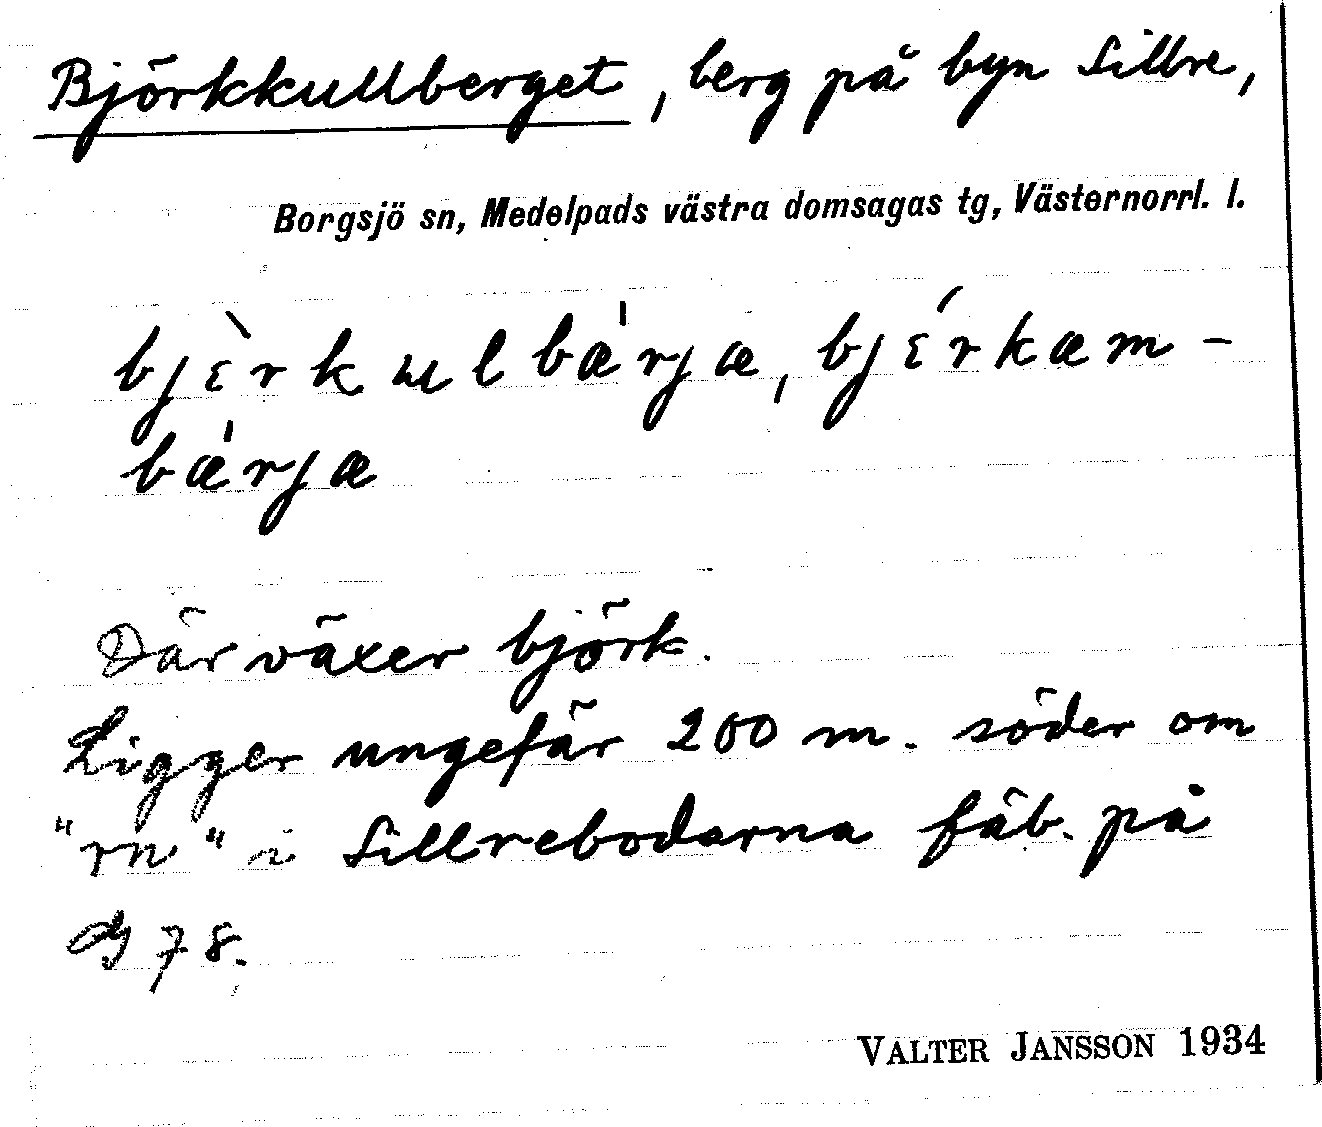 Björkkullberget, berg på byn Sillre,
Borgsjö sn, Medelpads västra domsagas tg, Västernorrl. l.
bjɛ̀rkɯlbæ̍rjæ, bjɛ́rkæm-
bæ̍rjæ
Där växer björk.
Ligger ungefär 200 m. söder om
"rn" i Sillrebodarna fäb. på
78.
VALTER JANSSON 1934